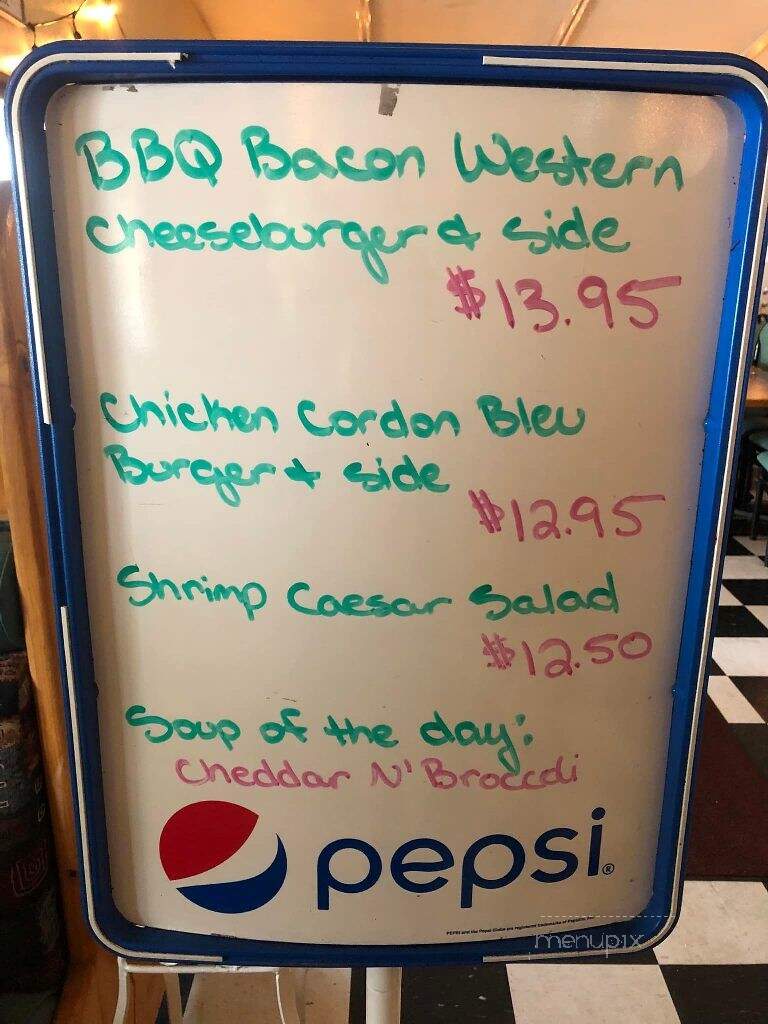 BBQ Bacon Western
Cheeseburger & side
$13.95
Chicken Cordon Bleu
Burger & side
$12.95
Shrimp Caesar Salad
$12.50
Soup of the day:
Cheddar N' Broccoli
pepsi®
PEPSI and the Pepsi Globe are registered trademarks of
menupix